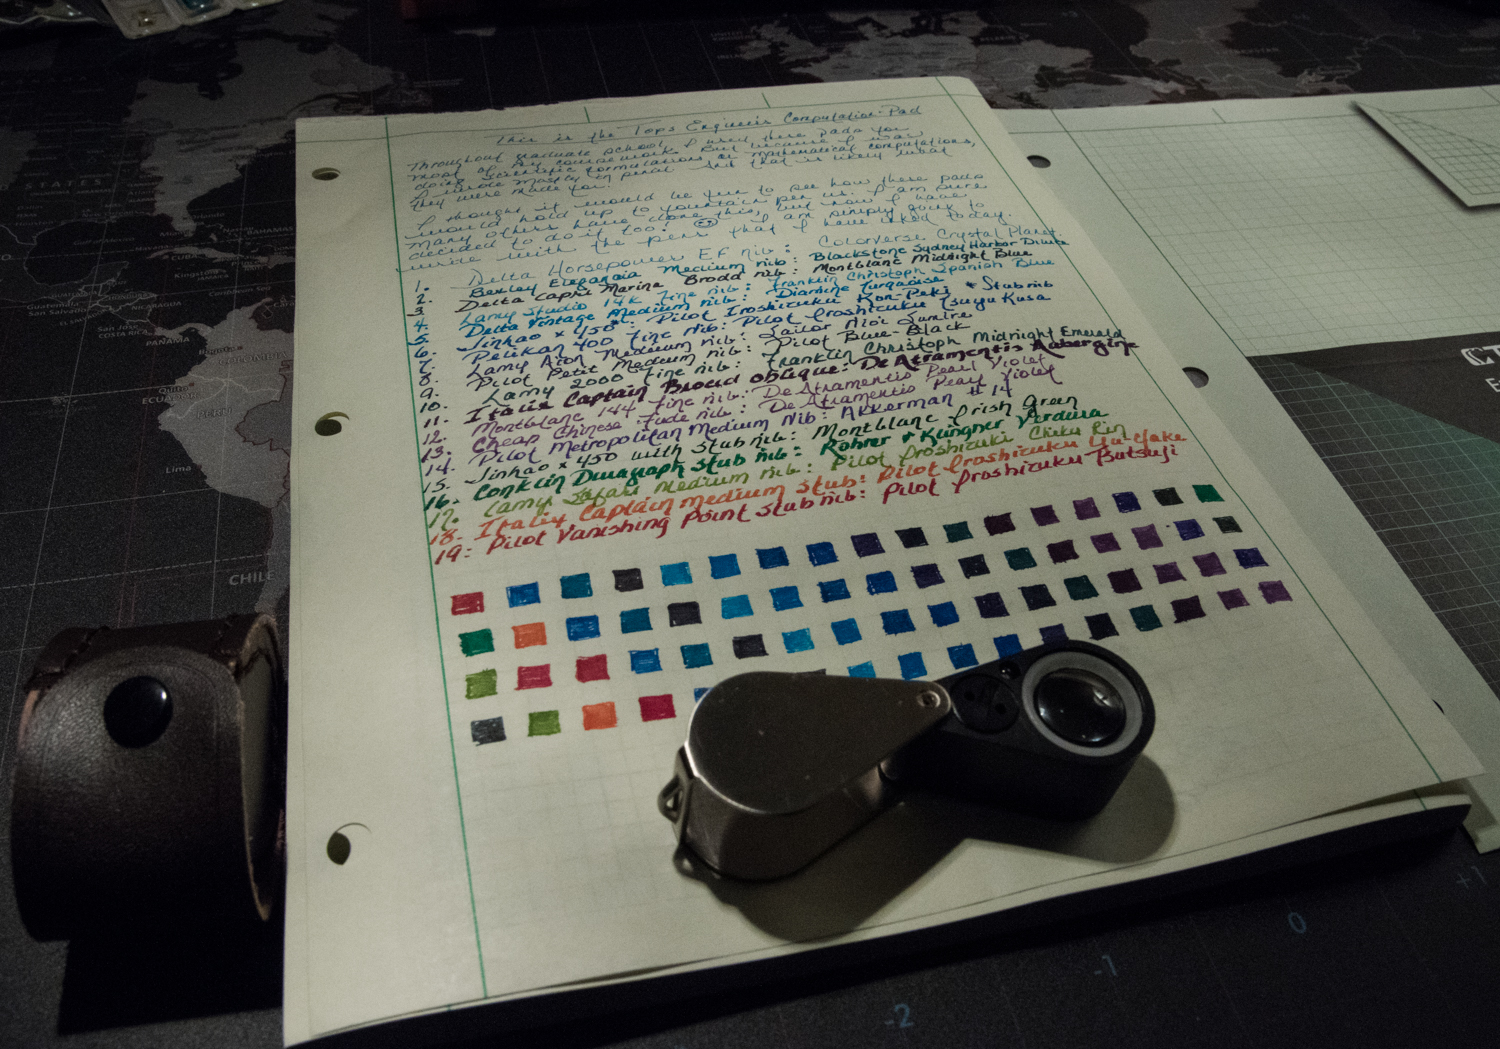 This is the Tops Engineer's Computation Pad
Throughout graduate school I used these pads for
most of my coursework. But because I was
doing scientific formulations or mathematical computations,
I wrote mostly in pencil and that is likely what
they were made for.
I thought it would be fun to see how these pads
would hold up to fountain pen use. I am sure
many others have done this, but now I have
decided to do it too. I am simply going to
write with the pens that I have inked today.
1. Delta Horsepower EF nib: Colorverse Crystal Planet.
2. Bexley Medium nib: Blackstone Sydney Harbor Dilute
3 Delta Capri Marine Broad nib: Montblanc Midnight Blue
4. Lamy Studio 14K Fine nib: Franklin Christoph Spanish Blue
5. Delta Vintage Medium nib: Diamine Turquoise
6. Jinhao x 450: Pilot Iroshizuku Kon-Peki * Stub nib
7. Pelikan 400 Fine Nib: Pilot Iroshizuku Tsuyu Kusa
8. Lamy Aion Medium nib: Sailor Nioi Sumire
9. Pilot Petit Medium nib: Pilot Blue-Black
10. Lamy 2000 Fine nib: Franklin Christoph Midnight Emerald
11. Italix Captain Broad oblique: De Atramentis Aubergine
12. Montblanc 144 Fine nib: De Atramentis Pearl Violet
13. Cheap Chinese Fude nib: De Atramentis Pearl Violet
14. Pilot Metropolitan Medium Nib: Akkerman #14
15. Jinhao x 450 with Stub nib: Montblanc Irish Green
16. Conklin Duragraph Stub nib: Rohrer & Klingner Verdura
17. Lamy Safari Medium nib: Pilot Iroshizuki Chiku Rin
18. Italix Captain medium stub: Pilot Iroshizuku Yu-Yake
19: Pilot Vanishing Point Stub nib: Pilot Iroshizuku Tsutsuji
STATES
BAHAMAS
COSTA RICA
PANAMA
COLOMBIA
Quito
ECUADOR
PERU
Lima
CHILE
+1
0
-1
-2